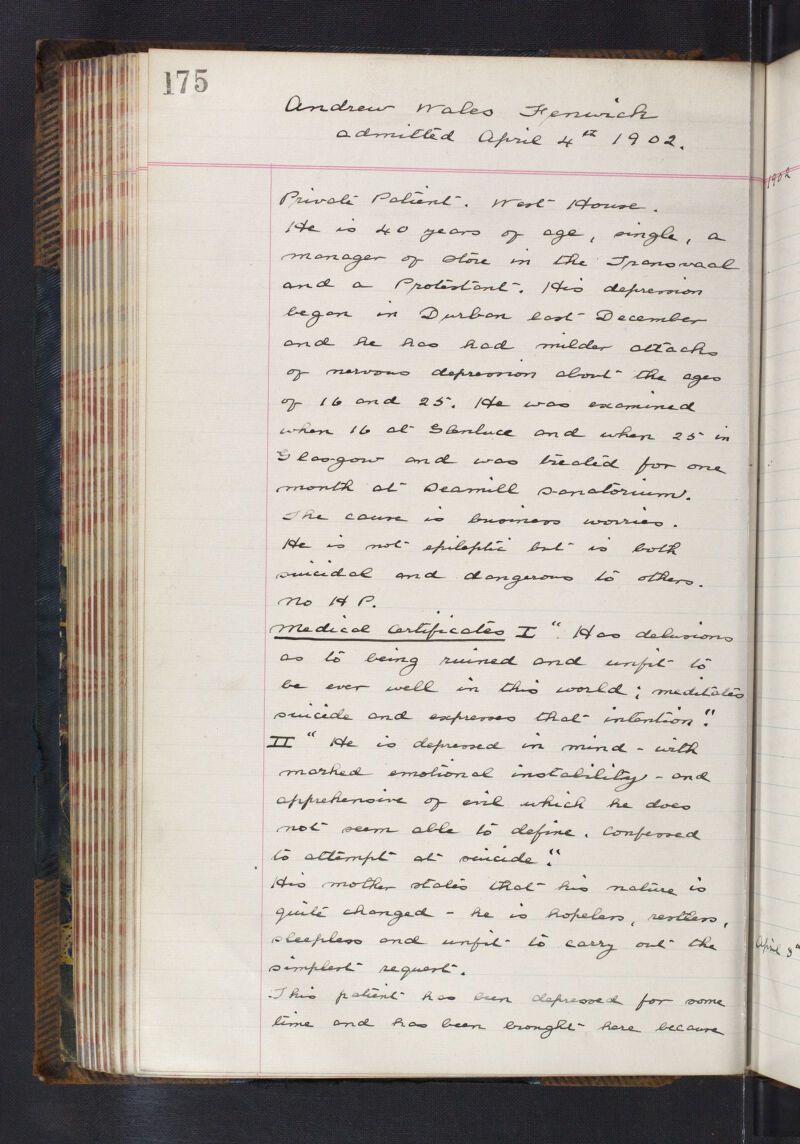 175
Andrew Wales Fenwick
admitted April 4th 1902.
1902
Private Patient. West House.
He is 40 years of age, single, a
manager of store in the Transvaal
and a Protestant. His depression
began in Durban last December
and he has had milder attacks
of nervous depression about the ages
of 16 and 25. He was examined
when 16 at Glenluce and when 25 in
Glasgow and was treated for one
month at Seamill Sanatorium.
The cause is business worries.
He is not epileptic but is both
suicidal and dangerous to others.
No H P.
Medical Certificates I "Has delusions
as to being ruined and unfit to
be ever well in this world; meditates
suicide and expresses that intention".
II "He is depressed in mind - with
marked emotional instability - and
apprehensive of evil which he does
not seem able to define. Confessed
to attempt at suicide".
His mother states that his nature is
quite changed - he is hopeless, restless,
sleepless and unfit to carry out the
simplest request.
This patient has been depressed for some
time and has been brought here because
April